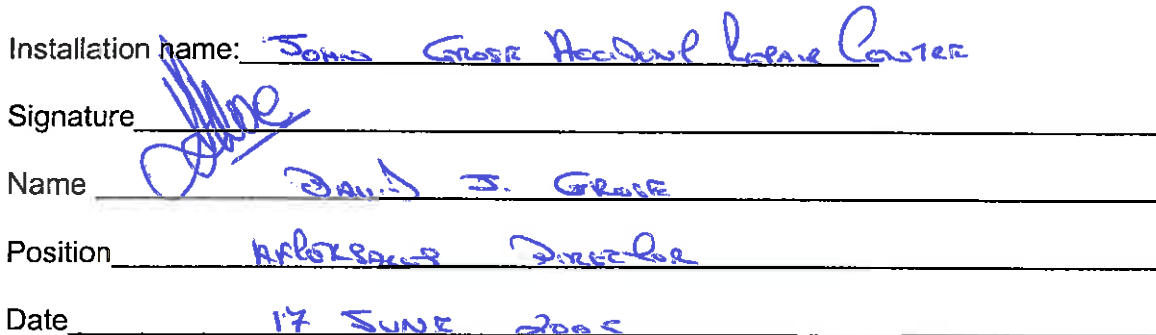 Installation name: John Grose Accident Repair Centre
Signature
Name David J. Grose
Position Aftersales Director
Date 17 June 2005